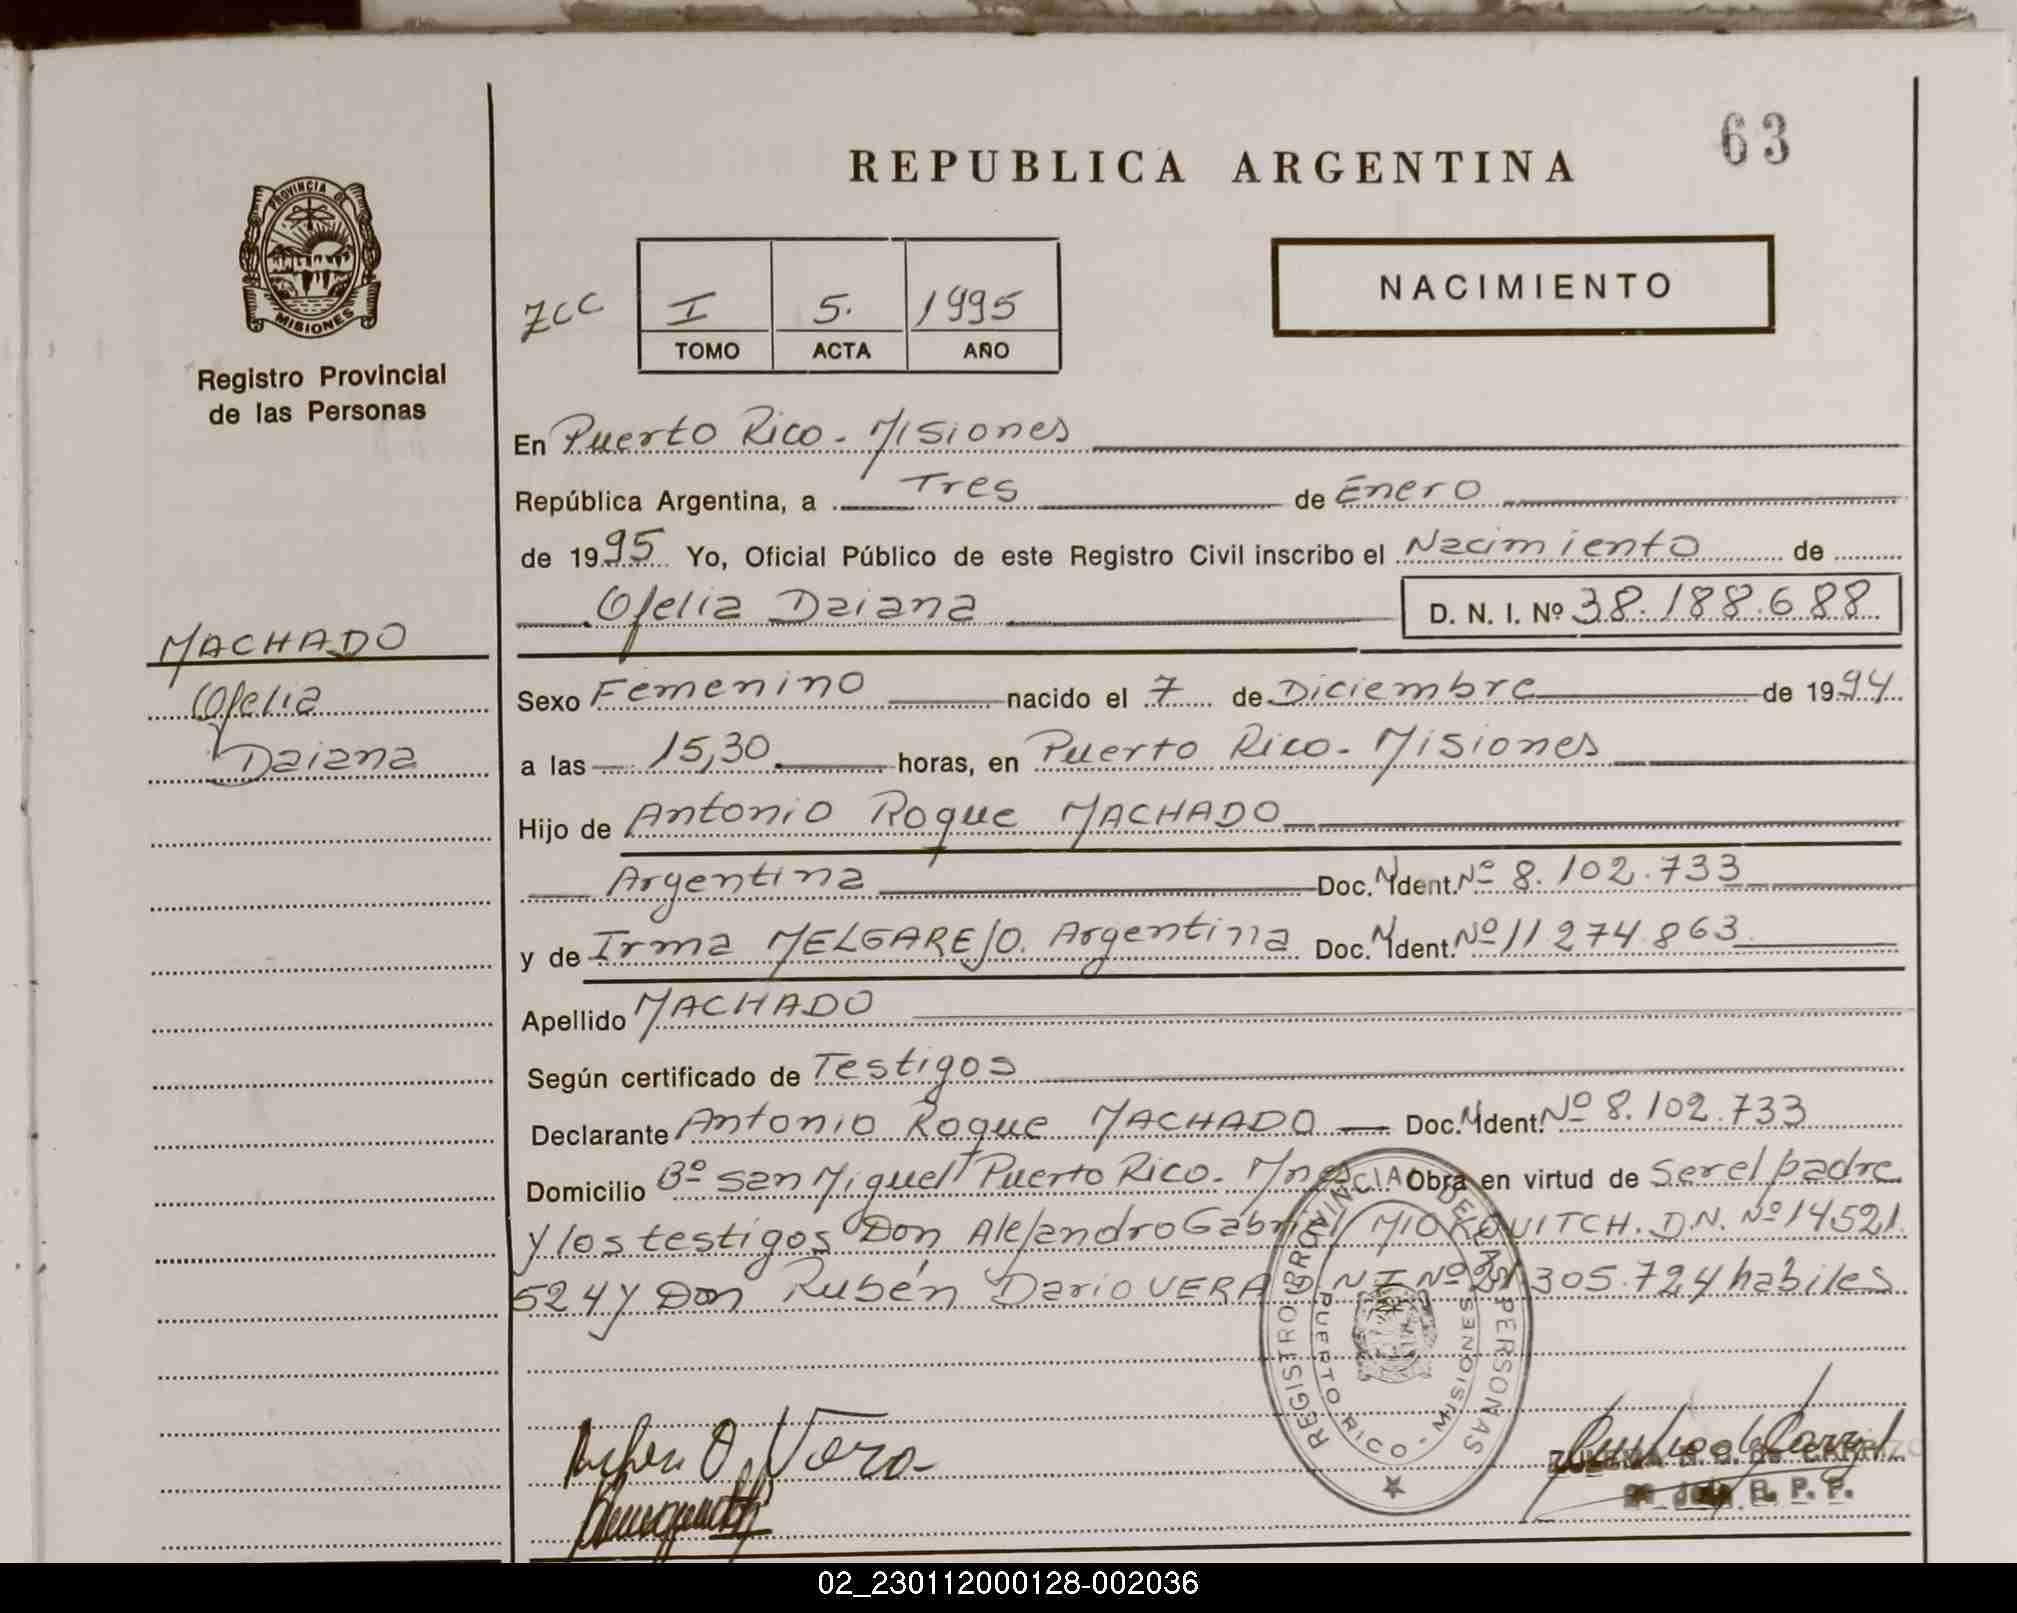 63
REPUBLICA ARGENTINA
PROVINCIA DE
MISIONES
Registro Provincial
de las Personas
NACIMIENTO
ZCC I 5. 1995
TOMO ACTA AÑO
En Puerto Rico - Misiones
República Argentina, a Tres de Enero
de 1995 Yo, Oficial Público de este Registro Civil inscribo el Nacimiento de
Ofelia Daiana D. N. I. Nº 38.188.688
MACHADO
Ofelia
Daiana
Sexo Femenino nacido el 7 de Diciembre de 1994
a las 15,30 horas, en Puerto Rico - Misiones
Hijo de Antonio Roque MACHADO
Argentina Doc. N Ident. Nº 8.102.733
y de Irma MELGAREJO. Argentina Doc. N Ident. Nº 11 274.863
Apellido MACHADO
Según certificado de Testigos
Declarante Antonio Roque MACHADO Doc. N Ident. Nº 8.102.733
Domicilio Bº San Miguel Puerto Rico - Mnes Obra en virtud de Ser el padre
y los testigos Don Alejandro Gabriel D.N. Nº 14521
524 y Don Rubén Dario VERA D N I Nº 21.305.724 habiles
REGISTRO PROVINCIAL DE LAS PERSONAS
PUERTO RICO - MISIONES
Vera
R. P. P.
02_230112000128-002036